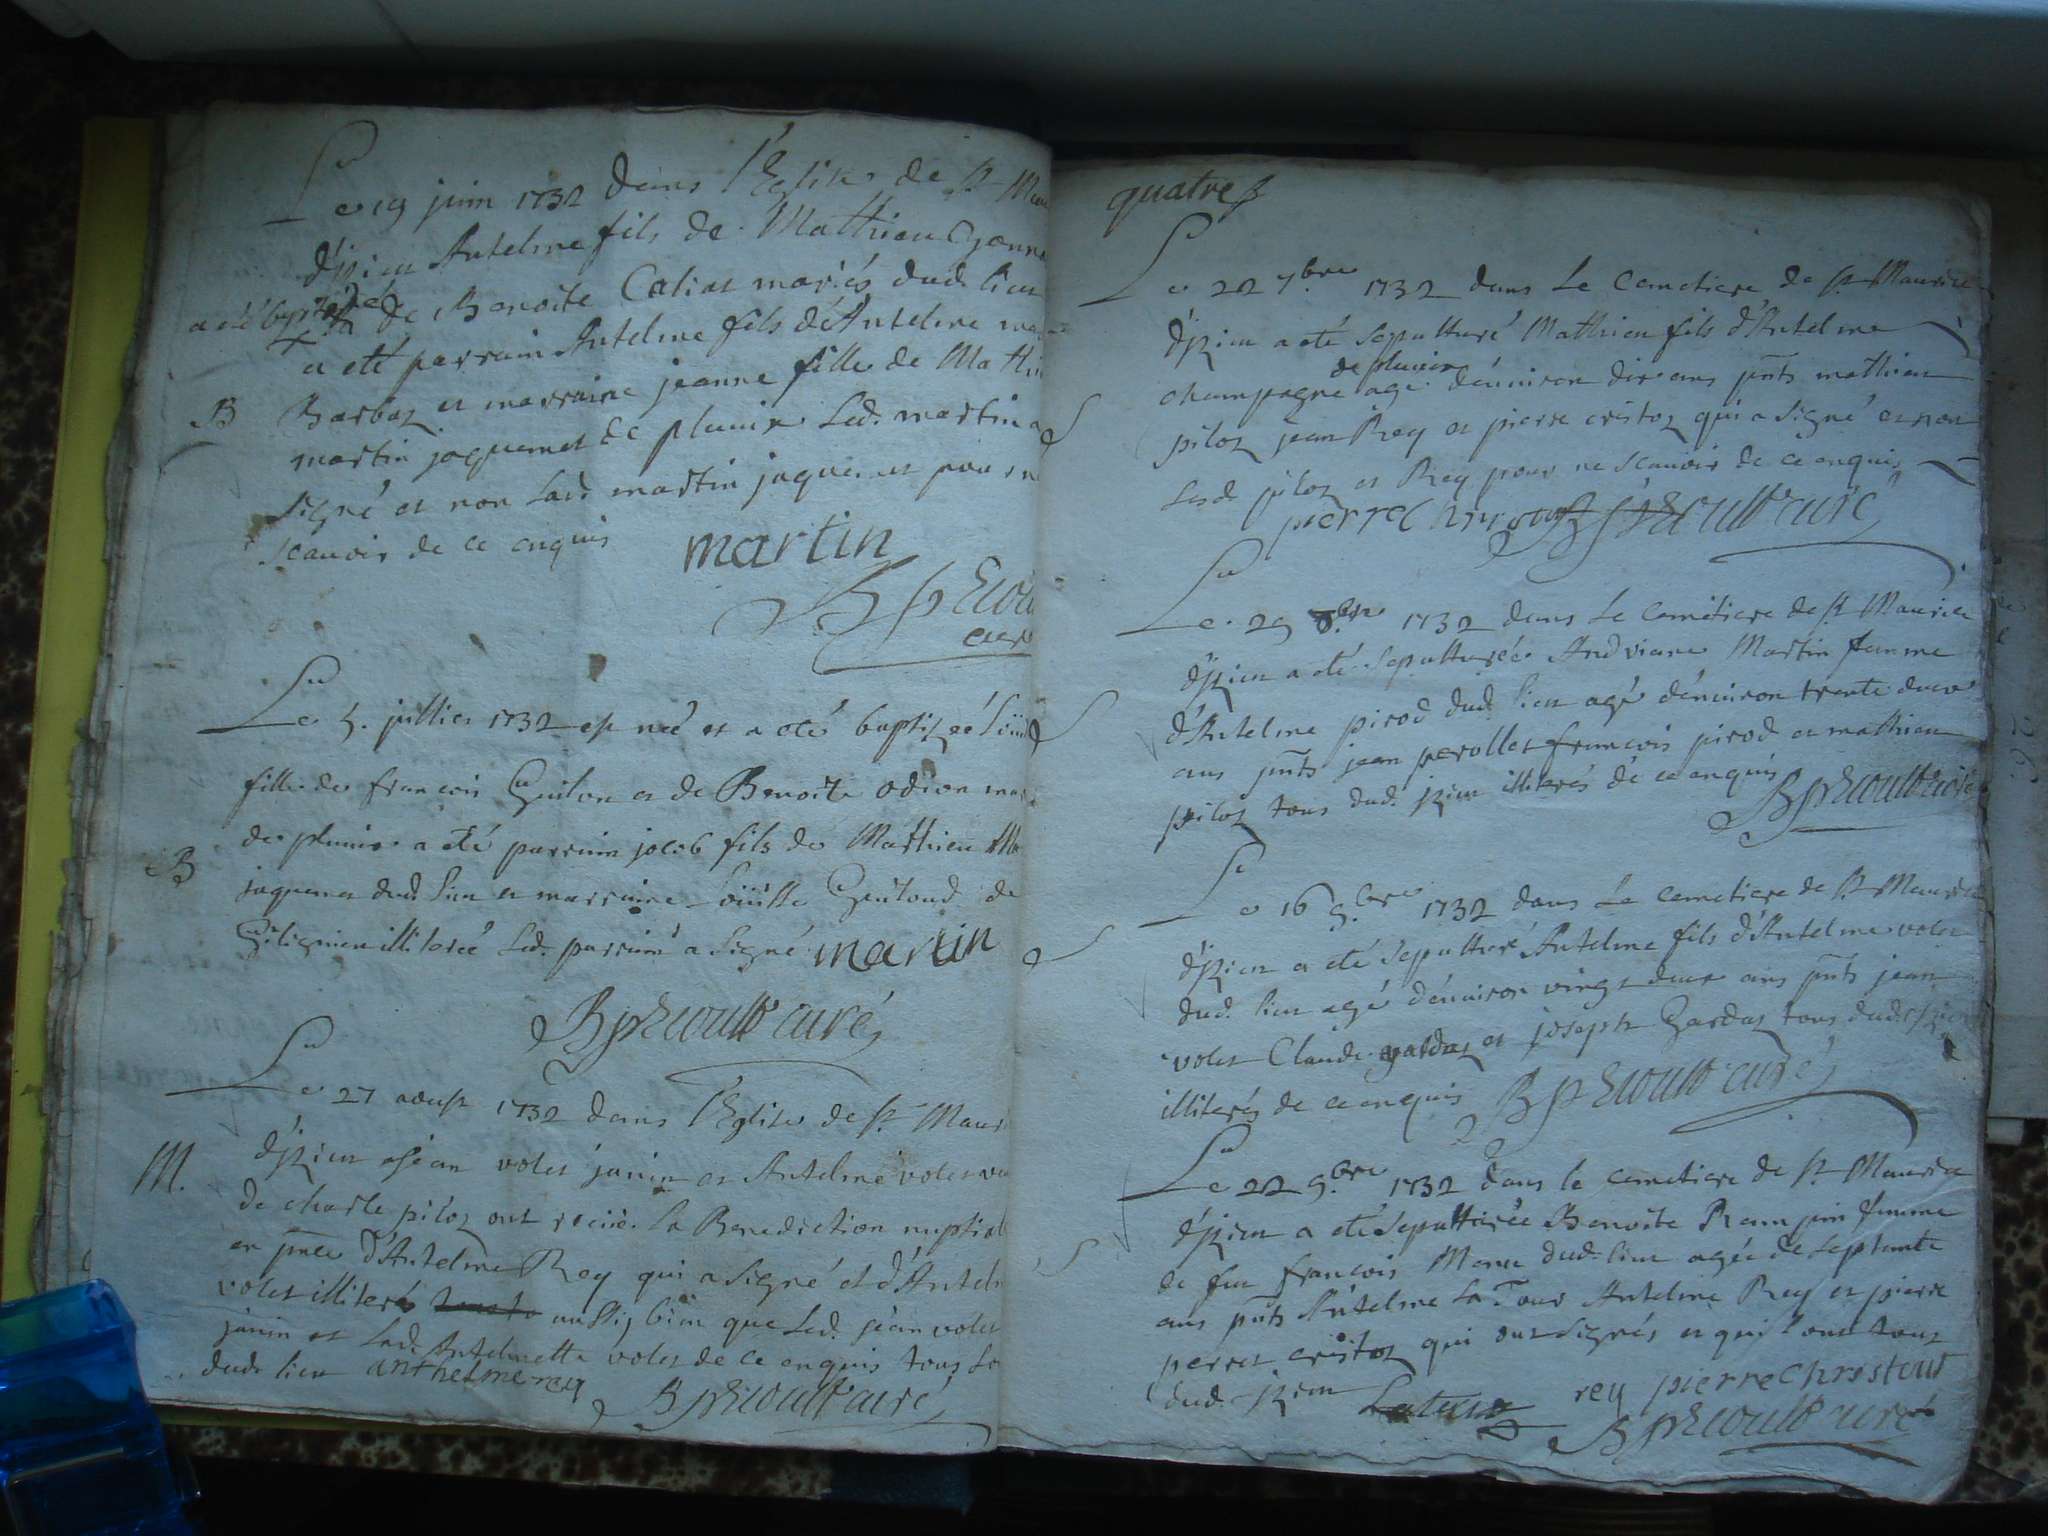 Le 19 juin 1732 dans l'Eglise de st Mau
d'izieu Antelme fils de Mathieu
a eté baptisé
& de Benoite Calias mariés dud. lieu
a eté parrain Antelme fils d'Antelme
B
Barbaz et marraine jeanne fille de Mathi
martin jaquemet de pluvis Led. martin a
signé et non Lad. martin jaquemet pour n
scavoir de ce enquis
martin
curé
Le 5. jullies 1732 est neé et a eté baptizeé
fille de françois Guilon et de Benoite odion mar
de pluvis a eté parrain jacob fils de Mathieu
B
jaquemet dud. lieu et marraine Loüise Guitoud de
illitereé Led. parrain a signé martin
curé
Le 27 aoust 1732 dans l'Eglise de st. Mauri
M.
d'izieu jéan volet janin et Antelme volet
de charle piloz ont receu La Benediction nuptial
en pnce d'Antelme Rey qui a signé et d'Antelm
volet illiterés aussy bien que Led. jéan volet
janin et Lad. Antelmette volet de ce enquis tous
dud. lieu anthelme rey
curé
quatre
Le 22 7.bre 1732 dans Le cemetiere de st. Maurice
d'izieu a eté sepulturé Mathieu fils d'Antelme
de pluvis
champagne agé d'environ dix ans pnts mathieu
S
piloz jean Rey et pierre cristoz qui a signé et non
Lesd. piloz et Rey pour ne scavoir de ce enquis
pierre curé
Le 29 8.bre 1732 dans Le cemitiere de st Maurice
d'izieu a eté sepulturée Andriane Martin femme
S
d'Antelme pirod dud. lieu agé d'environ trente deux
ans pnts jean perollet françois pirod et mathieu
piloz tous dud. izieu illiterés de ce enquis
curé
Le 16 9.bre 1732 dans Le cemetiere de st Maurice
S
d'izieu a eté sepulturé Antelme fils d'Antelme volet
dud. lieu agé d'environ vingt deux ans pnts jean
volet Claude gardaz et joseph Gardaz tous dud.
illiterés de ce enquis curé
Le 22 9.bre 1732 dans le cemetiere de st Maurice
d'izieu a eté sepulturée Benoite femme
S
de feu françois dud. lieu agée de septante
ans pnts Antelme La Tour Antelme Rey et pierre
perret cristoz qui ont signés et qui sont tous
dud. izieu rey pierre Christout
curé